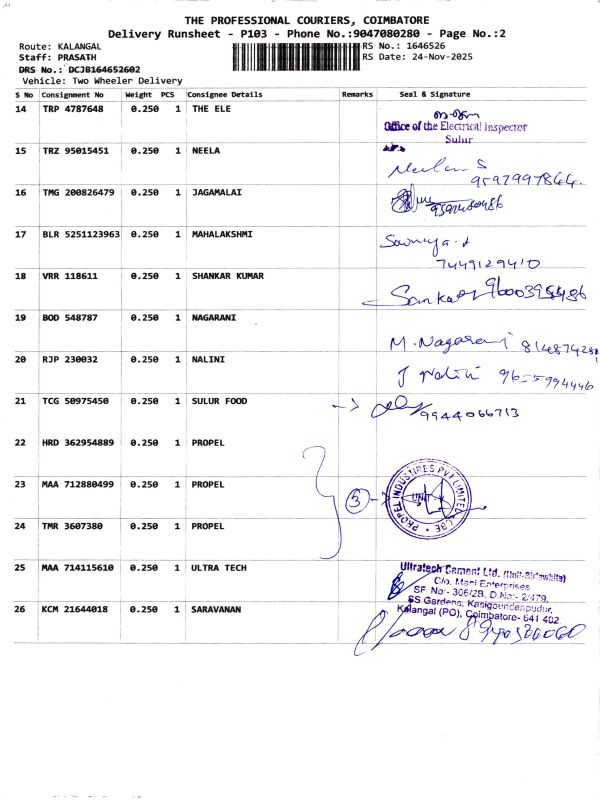 THE PROFESSIONAL COURIERS, COIMBATORE
Delivery Runsheet - P103 - Phone No.:9047080280 - Page No.:2
Route: KALANGAL RS No.: 1646526
Staff: PRASATH RS Date: 24-Nov-2025
DRS No.: DCJB164652602
Vehicle: Two Wheeler Delivery
S No Consignment No Weight PCS Consignee Details Remarks Seal & Signature
14 TRP 4787648 0.250 1 THE ELE
Office of the Electrical Inspector
Sulur
15 TRZ 95015451 0.250 1 NEELA
16 TMG 200826479 0.250 1 JAGAMALAI
17 BLR 5251123963 0.250 1 MAHALAKSHMI
7449129410
18 VRR 118611 0.250 1 SHANKAR KUMAR
19 BOD 548787 0.250 1 NAGARANI
M. Nagarani
20 RJP 230032 0.250 1 NALINI
J Nalini
21 TCG 50975450 0.250 1 SULUR FOOD
9944066713
22 HRD 362954889 0.250 1 PROPEL
23 MAA 712880499 0.250 1 PROPEL
3
PROPEL INDUSTRIES PVT LIMITED
CBE
24 TMR 3607380 0.250 1 PROPEL
25 MAA 714115610 0.250 1 ULTRA TECH
Ultratech Cement Ltd.
C/o. Mani Enterprises
SF No:- 306/2B, D.No:- 2/479,
SS Gardens, Kasigoundenpudur,
Kalangal (PO), Coimbatore- 641 402.
26 KCM 21644018 0.250 1 SARAVANAN